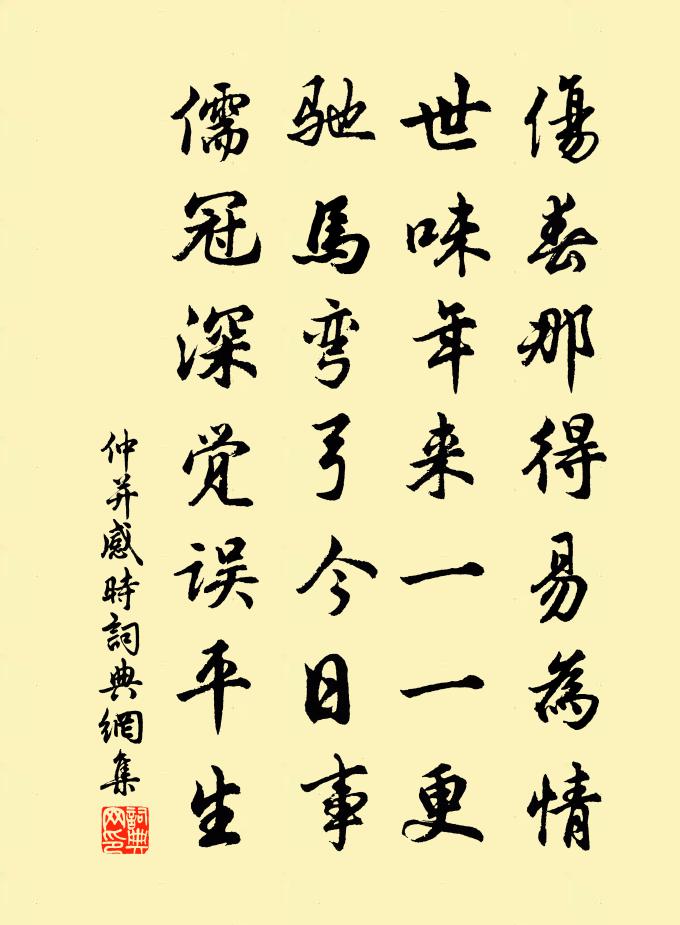 傷春那得易為情
世味年来一一更
馳馬弯弓今日事
儒冠深觉误平生
仲并感時詞典網集
詞典網印